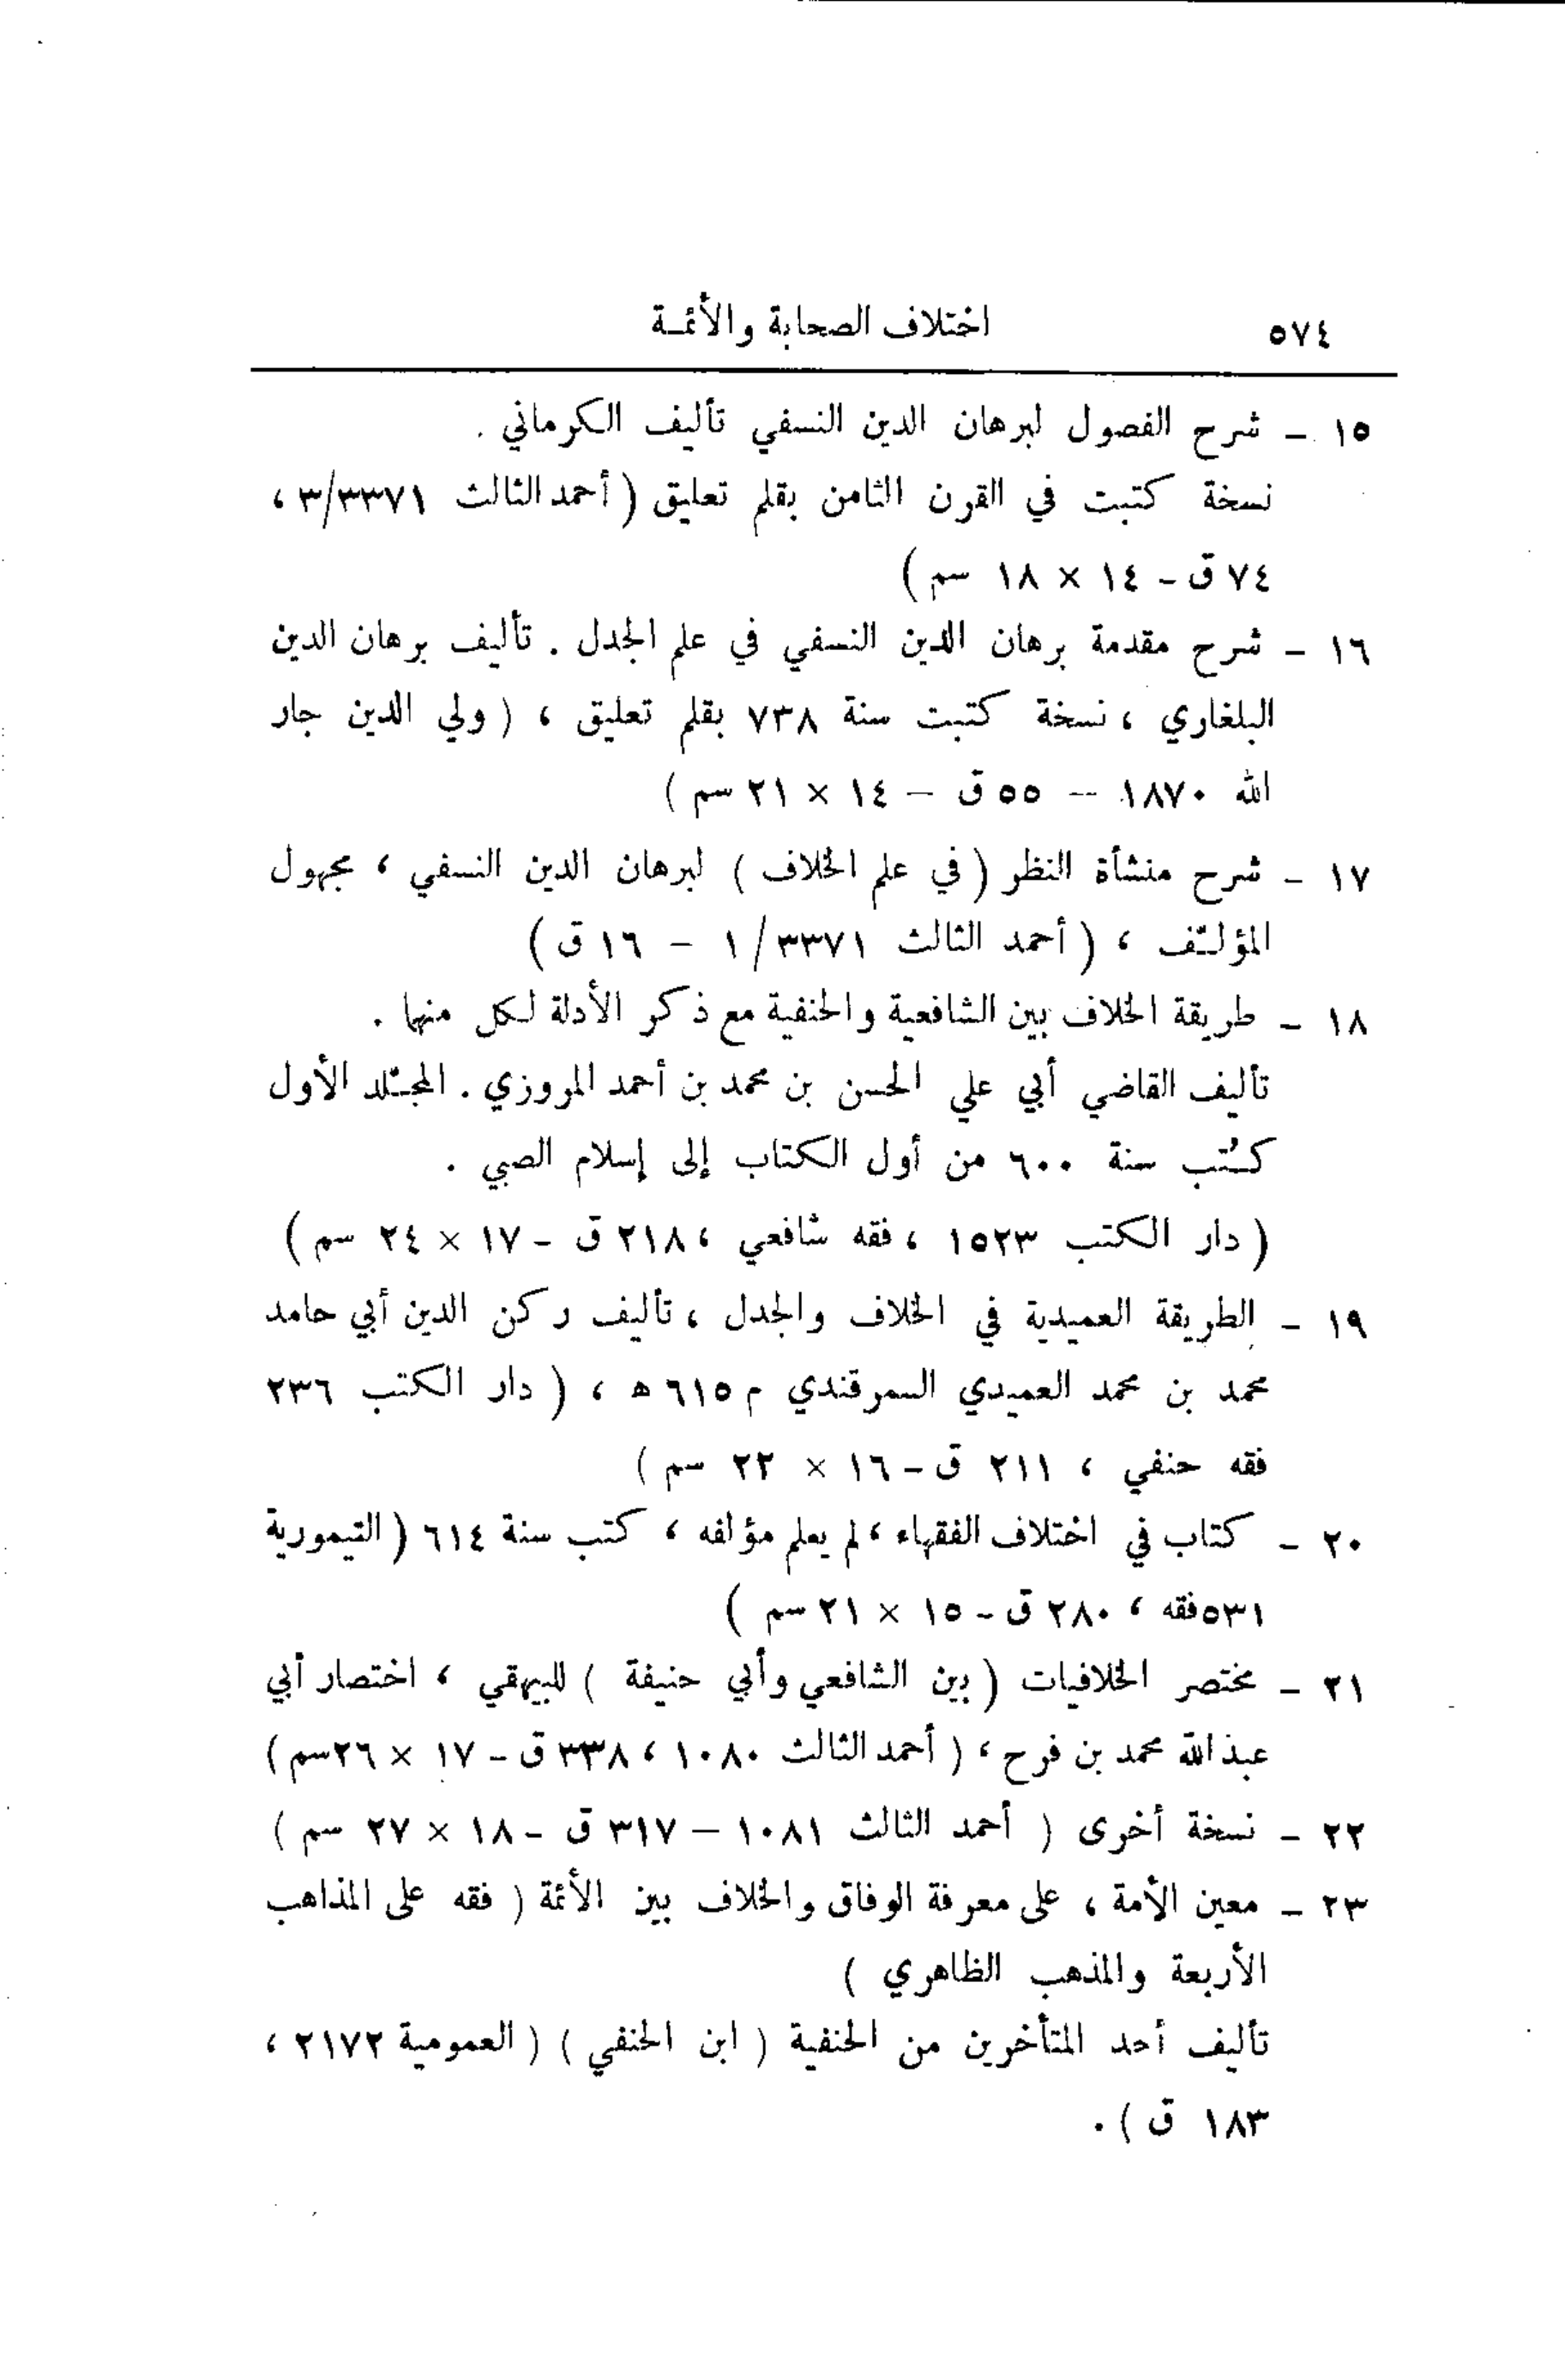 ٥٧٤ اختلاف الصحابة والأئمـة
١٥ ـ شرح الفصول لبرهان الدين النسفي تأليف الكرماني .
نسخة كتبت في القرن الثامن بقلم تعليق ( أحمد الثالث ٣/٣٣٧١ ،
٧٤ ق ـ ١٤ × ١٨ سم )
١٦ ـ شرح مقدمة برهان الدين النسفي في علم الجدل . تأليف برهان الدين
البلغاري ، نسخة كتبت سنة ٧٣٨ بقلم تعليق ، ( ولي الدين جار
الله ١٨٧٠ -- ٥٥ ق – ١٤ × ٢١ سم )
١٧ ـ شرح منشأة النظر ( في علم الخلاف ) لبرهان الدين النسفي ، مجهول
المؤلّف ، ( أحمد الثالث ١/٣٣٧١ – ١٦ ق )
١٨ ـ طريقة الخلاف بين الشافعية والحنفية مع ذكر الأدلة لكل منهما .
تأليف القاضي أبي علي الحسن بن محمد بن أحمد المروزي . المجلّد الأول
كُتب سنة ٦٠٠ من أول الكتاب إلى إسلام الصبي .
( دار الكتب ١٥٢٣ ، فقه شافعي ، ٢١٨ ق ـ ١٧ × ٢٤ سم )
١٩ ـ الطريقة العميدية في الخلاف والجدل ، تأليف ركن الدين أبي حامد
محمد بن محمد العميدي السمرقندي م ٦١٥ ه ، ( دار الكتب ٢٣٦
فقه حنفي ، ٢١١ ق ـ ١٦ × ٢٢ سم )
٢٠ ـ كتاب في اختلاف الفقهاء ، لم يعلم مؤلفه ، كتب سنة ٦١٤ ( التيمورية
٥٣١ فقه ، ٢٨٠ ق ـ ١٥ × ٢١ سم )
٢١ ـ مختصر الخلافيات ( بين الشافعي وأبي حنيفة ) للبيهقي ، اختصار أبي
عبد الله محمد بن فرح ، ( أحمد الثالث ١٠٨٠ ، ٣٣٨ ق ـ ١٧ × ٢٦سم )
٢٢ ـ نسخة أخرى ( أحمد الثالث ١٠٨١ – ٣١٧ ق ـ ١٨ × ٢٧ سم )
٢٣ ـ معين الأمة ، على معرفة الوفاق والخلاف بين الأئمة ( فقه على المذاهب
الأربعة والمذهب الظاهري )
تأليف أحد المتأخرين من الحنفية ( ابن الحنفي ) ( العمومية ٢١٧٢ ،
١٨٣ ق ) .